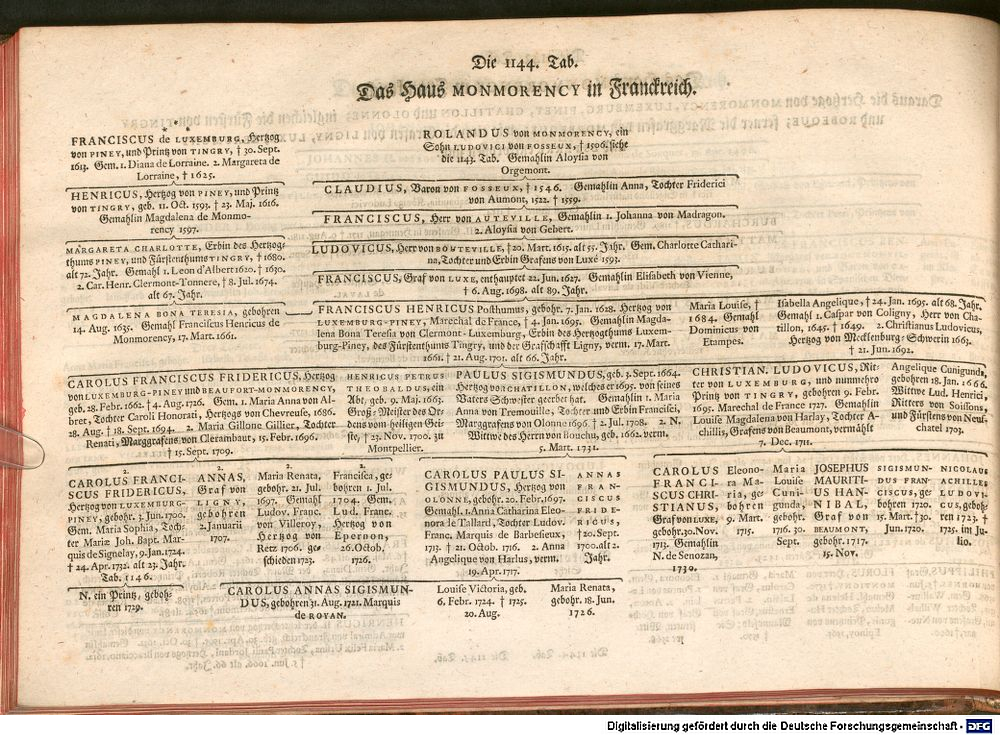 Die 1144. Tab.
Das Haus MONMORENCY in Franckreich.
FRANCISCUS de LUXEMBURG, Hertzog
von PINEY, und Printz von TINGRY, † 30. Sept.
1613. Gem. 1. Diana de Lorraine. 2. Margareta de
Lorraine, † 1625.
ROLANDUS von MONMORENCY, ein
Sohn LUDOVICI von FOSSEUX, † 1506. siehe
die 1143. Tab. Gemahlin Aloysia von
Orgemont.
HENRICUS, Hertzog von PINEY, und Printz
von TINGRY, geb. 11. Oct. 1593. † 23. Maj. 1616.
Gemahlin Magdalena de Monmo-
rency 1597.
CLAUDIUS, Baron von FOSSEUX, † 1546. Gemahlin Anna, Tochter Friderici
von Aumont, 1522. † 1559.
FRANCISCUS, Herr von AUTEVILLE, Gemahlin 1. Johanna von Madragon.
2. Aloysia von Gebert.
MARGARETA CHARLOTTE, Erbin des Hertzog-
thums PINEY, und Fürstenthums TINGRY, † 1680.
alt 72. Jahr. Gemahl 1. Leon d'Albert 1620. † 1630.
2. Car. Henr. Clermont-Tonnere, † 8. Jul. 1674.
alt 67. Jahr.
LUDOVICUS, Herr von BOUTEVILLE, † 20. Mart. 1615. alt 55. Jahr. Gem. Charlotte Cathari-
na, Tochter und Erbin Grafens von Luxé 1593.
FRANCISCUS, Graf von LUXE, enthauptet 22. Jun. 1627. Gemahlin Elisabeth von Vienne,
† 6. Aug. 1698. alt 89. Jahr.
MAGDALENA BONA TERESIA, gebohren
14. Aug. 1635. Gemahl Franciscus Henricus de
Monmorency, 17. Mart. 1661.
FRANCISCUS HENRICUS Posthumus, gebohr. 7. Jan. 1628. Hertzog von
LUXEMBURG-PINEY, Marechal de France, † 4. Jan. 1695. Gemahlin Magda-
lena Bona Teresia von Clermont-Luxemburg, Erbin des Hertzogthums Luxem-
burg-Piney, des Fürstenthums Tingry, und der Grafschafft Ligny, verm. 17. Mart.
1661. † 21. Aug. 1701. alt 66. Jahr.
Maria Louise, †
1684. Gemahl
Dominicus von
Etampes.
Isabella Angelique, † 24. Jan. 1695. alt 68. Jahr.
Gemahl 1. Caspar von Coligny, Herr von Cha-
tillon, 1645. † 1649. 2. Christianus Ludovicus,
Hertzog von Mecklenburg-Schwerin 1663.
† 21. Jun. 1692.
CAROLUS FRANCISCUS FRIDERICUS, Hertzog
von LUXEMBURG-PINEY und BEAUFORT-MONMORENCY,
geb. 28. Febr. 1662. † 4. Aug. 1726. Gem. 1. Maria Anna von Al-
bret, Tochter Caroli Honorati, Hertzogs von Chevreuse, 1686.
28. Aug. † 18. Sept. 1694. 2. Maria Gillone Gillier, Tochter
Renati, Marggrafens von Clerambaut, 15. Febr. 1696.
† 15. Sept. 1709.
HENRICUS PETRUS
THEOBALDUS, ein
Abt, geb. 9. Maj. 1663.
Groß-Meister des Or-
dens vom heiligen Gei-
ste, † 23. Nov. 1700. zu
Montpellier.
PAULUS SIGISMUNDUS, geb. 3. Sept. 1664.
Hertzog von CHATILLON, welches er 1695. von seines
Vaters Schwester geerbet hat. Gemahlin 1. Maria
Anna von Tremouille, Tochter und Erbin Francisci,
Marggrafens von Olonne 1696. † 2. Jul. 1708. 2. N.
Wittwe des Herrn von Bouchu, geb. 1662. verm.
5. Mart. 1731.
CHRISTIAN. LUDOVICUS, Rit-
ter von LUXEMBURG, und nunmehro
Printz von TINGRY, gebohren 9. Febr.
1695. Marechal de France 1727. Gemahlin
Louise Magdalena von Harlay, Tochter A-
chillis, Grafens von Beaumont, vermählt
7. Dec. 1711.
Angelique Cunigunda,
gebohren 18. Jan. 1666.
Wittwe Lud. Henrici,
Ritters von Soissons,
und Fürstens von Neuf-
chatel 1703.
2.
CAROLUS FRANCI-
SCUS FRIDERICUS,
Hertzog von LUXEMBURG
PINEY, gebohr. 3. Jun. 1700.
Gem. Maria Sophia, Toch-
ter Mariæ Joh. Bapt. Mar-
quis de Signelay, 9. Jan. 1724.
† 24. Apr. 1732. alt 23. Jahr.
Tab. 1146.
2.
ANNAS,
Graf von
LIGNY,
gebohren
2. Januarii
1707.
2.
Maria Renata,
gebohr. 21. Jul.
1697. Gemahl
Ludov. Franc.
von Villeroy,
Hertzog von
Retz 1706. ge-
schieden 1723.
2.
Francisca, ge-
bohren 1. Jul.
1704. Gem.
Lud. Franc.
Hertzog von
Epernon,
26. Octob.
1726.
CAROLUS PAULUS SI-
GISMUNDUS, Hertzog von
OLONNE, gebohr. 20. Febr. 1697.
Gemahl. 1. Anna Catharina Eleo-
nora le Tallard, Tochter Ludov.
Franc. Marquis de Barbesieux,
1713. † 21. Octob. 1716. 2. Anna
Angelique von Harlus, verm.
19. Apr. 1717.
ANNAS
FRAN-
CISCUS
FRIDE-
RICUS,
† 20. Sept.
1700. alt 2.
Jahr.
CAROLUS
FRANCI-
SCUS CHRI-
STIANUS,
Graf von LUXE,
gebohr. 30. Nov.
1713. Gemahlin
N. de Senozan,
1730.
Eleono-
ra Ma-
ria, ge-
bohren
9. Mart.
1715.
Maria
Louise
Cuni-
gunda,
gebohr.
1716. 30.
Sept.
JOSEPHUS
MAURITI-
US HAN-
NIBAL,
Graf von
BEAUMONT,
gebohr. 1717.
15. Nov.
SIGISMUN-
DUS FRAN-
CISCUS, ge-
bohren 1720.
15. Mart. † 30.
Jun. 1720.
NICOLAUS
ACHILLES
LUDOVI-
CUS, gebohr-
ren 1723. †
1725. im Ju-
lio.
N. ein Printz, geboh-
ren 1729.
CAROLUS ANNAS SIGISMUN-
DUS, gebohren 31. Aug. 1721. Marquis
de ROYAN.
Louise Victoria, geb.
6. Febr. 1724. † 1725.
20. Aug.
Maria Renata,
gebohr. 18. Jun.
1726.
Digitalisierung gefördert durch die Deutsche Forschungsgemeinschaft - DFG